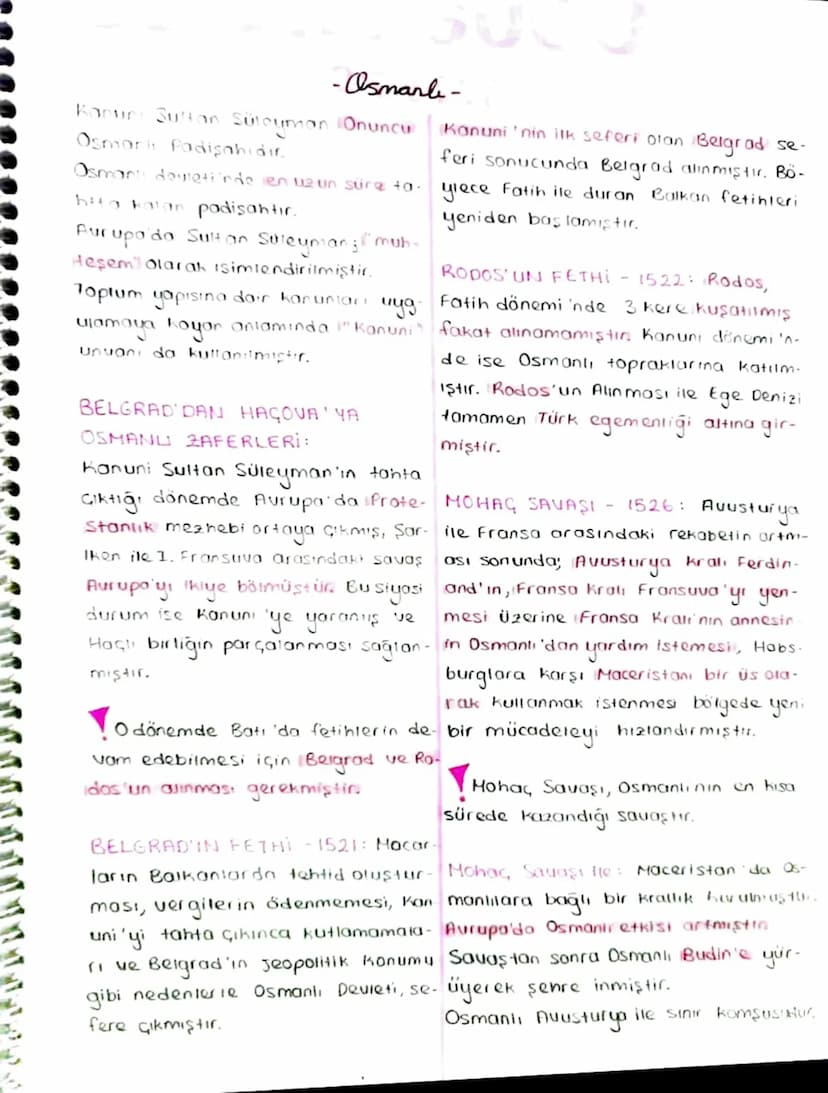 -Osmanlı-
Kanuni Sultan Süleyman Onuncu
Osmanlı Padişahıdır.
Osmanlı devleti'nde en uzun süre ta-
htta kalan padişahtır.
Avrupa'da Sultan Süleyman; "muh-
teşem" olarak isimlendirilmiştir.
Toplum yapısına dair kanunları uyg-
ulamaya koyan anlamında "Kanuni"
unvanı da kullanılmıştır.
BELGRAD'DAN HAÇOVA'YA
OSMANLI ZAFERLERİ:
Kanuni Sultan Süleyman'ın tahta
çıktığı dönemde Avrupa'da Prote-
stanlık mezhebi ortaya çıkmış, Şar-
lken ile 1. Fransuva arasındaki savaş
Avrupa'yı ikiye bölmüştür. Bu siyasi
durum ise Kanuni'ye yaramış ve
Haçlı birliğin parçalanması sağlan-
mıştır.
! O dönemde Batı'da fetihlerin de-
vam edebilmesi için Belgrad ve Ro-
dos'un alınması gerekmiştir.
BELGRAD'IN FETHİ - 1521: Macar-
ların Balkanlarda tehtid oluştur-
ması, vergilerin ödenmemesi, Kan
uni'yi tahta çıkınca kutlamamala-
rı ve Belgrad'ın jeopolitik konumu
gibi nedenlerle Osmanlı Devleti, se-
fere çıkmıştır.
Kanuni'nin ilk seferi olan Belgrad se-
feri sonucunda Belgrad alınmıştır. Bö-
ylece Fatih ile duran Balkan fetihleri
yeniden başlamıştır.
RODOS'UN FETHİ - 1522: Rodos,
Fatih dönemi'nde 3 kere kuşatılmış
fakat alınamamıştır. Kanuni dönemi'n-
de ise Osmanlı topraklarına katılm-
ıştır. Rodos'un Alınması ile Ege Denizi
tamamen Türk egemenliği altına gir-
miştir.
MOHAÇ SAVAŞI - 1526: Avusturya
ile Fransa arasındaki rekabetin artm-
ası sonunda; Avusturya kralı Ferdin-
and'ın, Fransa Kralı Fransuva'yı yen-
mesi üzerine Fransa Kralı'nın annesin
in Osmanlı'dan yardım istemesi, Habs-
burglara karşı Maceristanı bir üs ola-
rak kullanmak istenmesi bölgede yeni
bir mücadeleyi hızlandırmıştır.
! Mohaç Savaşı, Osmanlı'nın en kısa
sürede kazandığı savaştır.
Mohaç Savaşı ile: Maceristan'da Os-
manlılara bağlı bir krallık kurulmuştur.
Avrupa'da Osmanlı etkisi artmıştır.
Savaştan sonra Osmanlı Budin'e yür-
üyerek şehre inmiştir.
Osmanlı Avusturya ile sınır komşusudur.